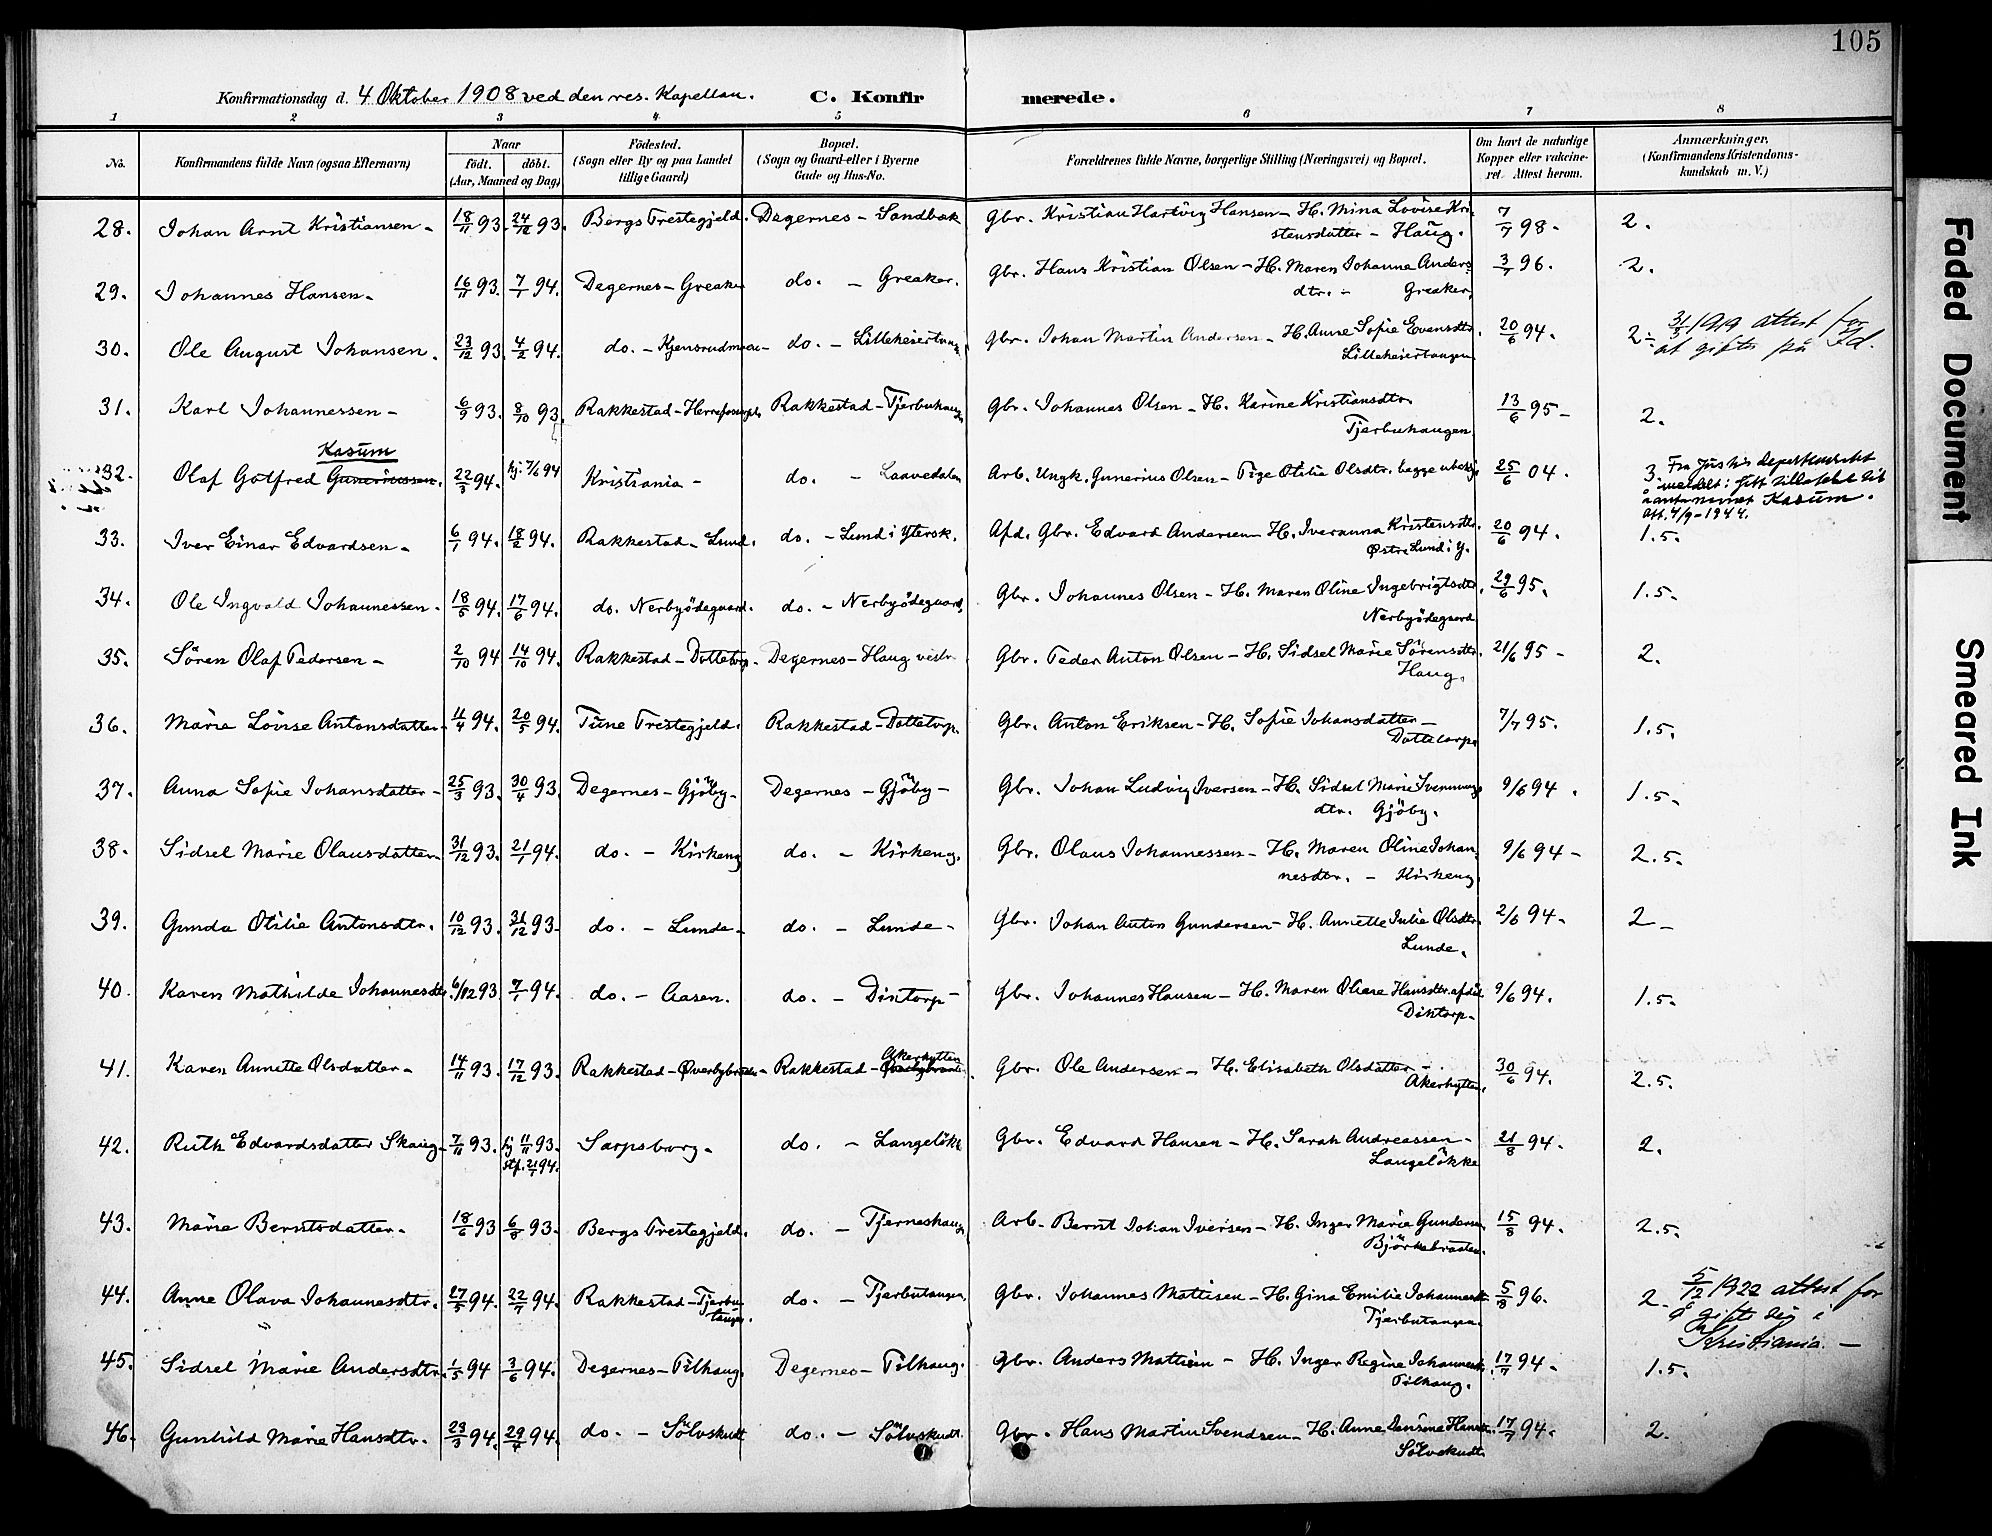 105
Konfirmationsdag d. 4 Oktober 1908 ved den res. Kapellan. C. Konfirmerede.
1 2 3 4 5 6 7 8
No. Konfirmandens fulde Navn (ogsaa Efternavn) Naar födt. döbt. (Aar, Maaned og Dag) Födested. (Sogn eller By og paa Landet tillige Gaard) Bopæl. (Sogn og Gaard eller i Byerne Gade og Hus-No. Forældrenes fulde Navne, borgerlige Stilling (Næringsvei) og Bopæl. Om havt de naturlige Kopper eller vakcineret. Attest herom. Anmærkninger. (Konfirmandens Kristendomskundskab m. V.)
28. Johan Arnt Kristiansen - 18/11 93. 24/12 93. Bergs Prestegjeld. Degernes - Sandbæk Gbr. Kristian Hartvig Hansen - H. Mina Lovise Kristensdatter - Haug. 7/7 98. 2.
29. Johannes Hansen - 16/11 93. 7/1 94. Degernes - Greaker do. - Greaker. Gbr. Hans Kristian Olsen - H. Maren Johanne Andersdtr. - Greaker. 3/7 96. 2.
30. Ole August Johansen. 23/12 93. 4/2 94. do. - Kjensrudmoen - do. - Lilleheiertangen Gbr. Johan Martin Andersen - H. Anne Sofie Evensdtr. Lilleheiertangen 20/6 94. 2 - 31/3 1919 attest for at gifte på Id.
31. Karl Johannessen - 6/9 93. 8/10 93. Rakkestad - Rakkestad - Tjerbuhaugen Gbr. Johannes Olsen - H. Karine Kristiansdtr. Tjerbuhaugen 13/6 95 - 2.
Kasum
32. Olaf Gotfred Guneriussen. 22/3 94. hj. 7/6 94 Kristiania - do. - Laavedalen Arb. Ungk. Gunerius Olsen - Pige Otilia Olsdtr. begge ubesk. 25/6 04. 3. Fra Justisdepartementet meldt: fått tillatelse til å anta navnet Kasum. Att. 4/9-1944.
33. Iver Einar Edvardsen - 6/1 94. 18/2 94. Rakkestad - Lund. do. - Lund i Ytersk. Afd. Gbr. Edvard Andersen - H. Iveranna Kristensdtr. Østre Lund i Y. 20/6 94. 1.5.
34. Ole Ingvald Johannessen - 18/5 94. 17/6 94. do. Nerbyödegaard. do. - Nerbyödegaard. Gbr. Johannes Olsen - H. Maren Oline Ingebrigtsdtr. Nerbyödegaard 29/6 95. 1.5.
35. Sören Olaf Pedersen - 2/10 94 14/10 94. Rakkestad - Dottetorp. Degernes - Haug vestr. Gbr. Peder Anton Olsen - H. Sidsel Marie Sörensdtr. Haug. 21/6 95 - 2.
36. Marie Lovise Antonsdatter - 4/4 94. 20/5 94. Tune Prestegjeld. Rakkestad - Dottetorp. Gbr. Anton Eriksen - H. Sofie Johansdatter - Dottetorp. 7/7 95. 1.5.
37. Anna Sofie Johansdatter - 25/3 93. 30/4 93. Degernes - Gjöby - Degernes - Gjöby - Gbr. Johan Ludvig Iversen - H. Sidsel Marie Svenungsdtr. Gjöby. 9/6 94. 1.5.
38. Sidsel Marie Olausdatter - 31/12 93. 21/1 94. do. - Kirkeng do. - Kirkeng. Gbr. Olaus Johannessen - H. Maren Oline Johannesdtr. - Kirkeng. 9/6 94 - 2.5.
39. Gunda Otilie Antonsdtr. 10/12 93. 31/12 93. do. - Lunde - do. - Lunde - Gbr. Johan Anton Gundersen - H. Annette Julie Olsdtr. Lunde. 2/6 94. 2 -
40. Karen Mathilde Johannesdtr. 6/12 93. 7/1 94. do. - Aasen. do. - Dintorp - Gbr. Johannes Hansen - H. Maren Oliane Hansdtr. afdöd Dintorp - 9/6 94. 1.5.
41. Karen Annette Olsdatter - 14/11 93. 17/12 93. Rakkestad - Øverbybraaten - Rakkestad - Øverbybraaten Akerhytten Gbr. Ole Andersen - H. Elisabeth Olsdatter - Akerhytten. 30/6 94. 2.5.
42. Ruth Edvardsdatter Skaug - 7/11 93. hj 11/11 93. stf. 21/1 94. Sarpsborg. do. - Langelökk Gbr. Edvard Hansen - H. Sarah Andreassen - Langelökke 21/8 94. 2.
43. Marie Berntsdatter - 18/6 93 6/8 93. Bergs Prestegjeld. do. - Tjerneshaug Arb. Bernt Johan Iversen - H. Inger Marie Gundersen Björkebraaten. 15/8 94. 2.5.
44. Anne Olava Johannesdtr. 27/5 94. 22/7 94. Rakkestad - Tjerbutangen. do. - Tjerbutangen. Gbr. Johannes Mattisen - H. Gina Emilie Johannesdtr. Tjerbutangen. 5/8 96. 2 - 5/12 1922 attest for å gifte sig i Kristiania. -
45. Sidsel Marie Andersdtr. 1/5 94 3/6 94. Degernes - Tilhaug. Degernes - Tilhaug. Gbr. Anders Mattisen - H. Inger Regine Johannesdtr. Tilhaug. 17/7 94. 1.5.
46. Gunhild Marie Hansdtr. 23/3 94. 29/4 94. do. - Sölvskudt do. - Sölvskudt. Gbr. Hans Martin Svendsen - H. Anne Hansdtr. Sölvskudt 17/7 94. 2.
Faded Document
Smeared Ink